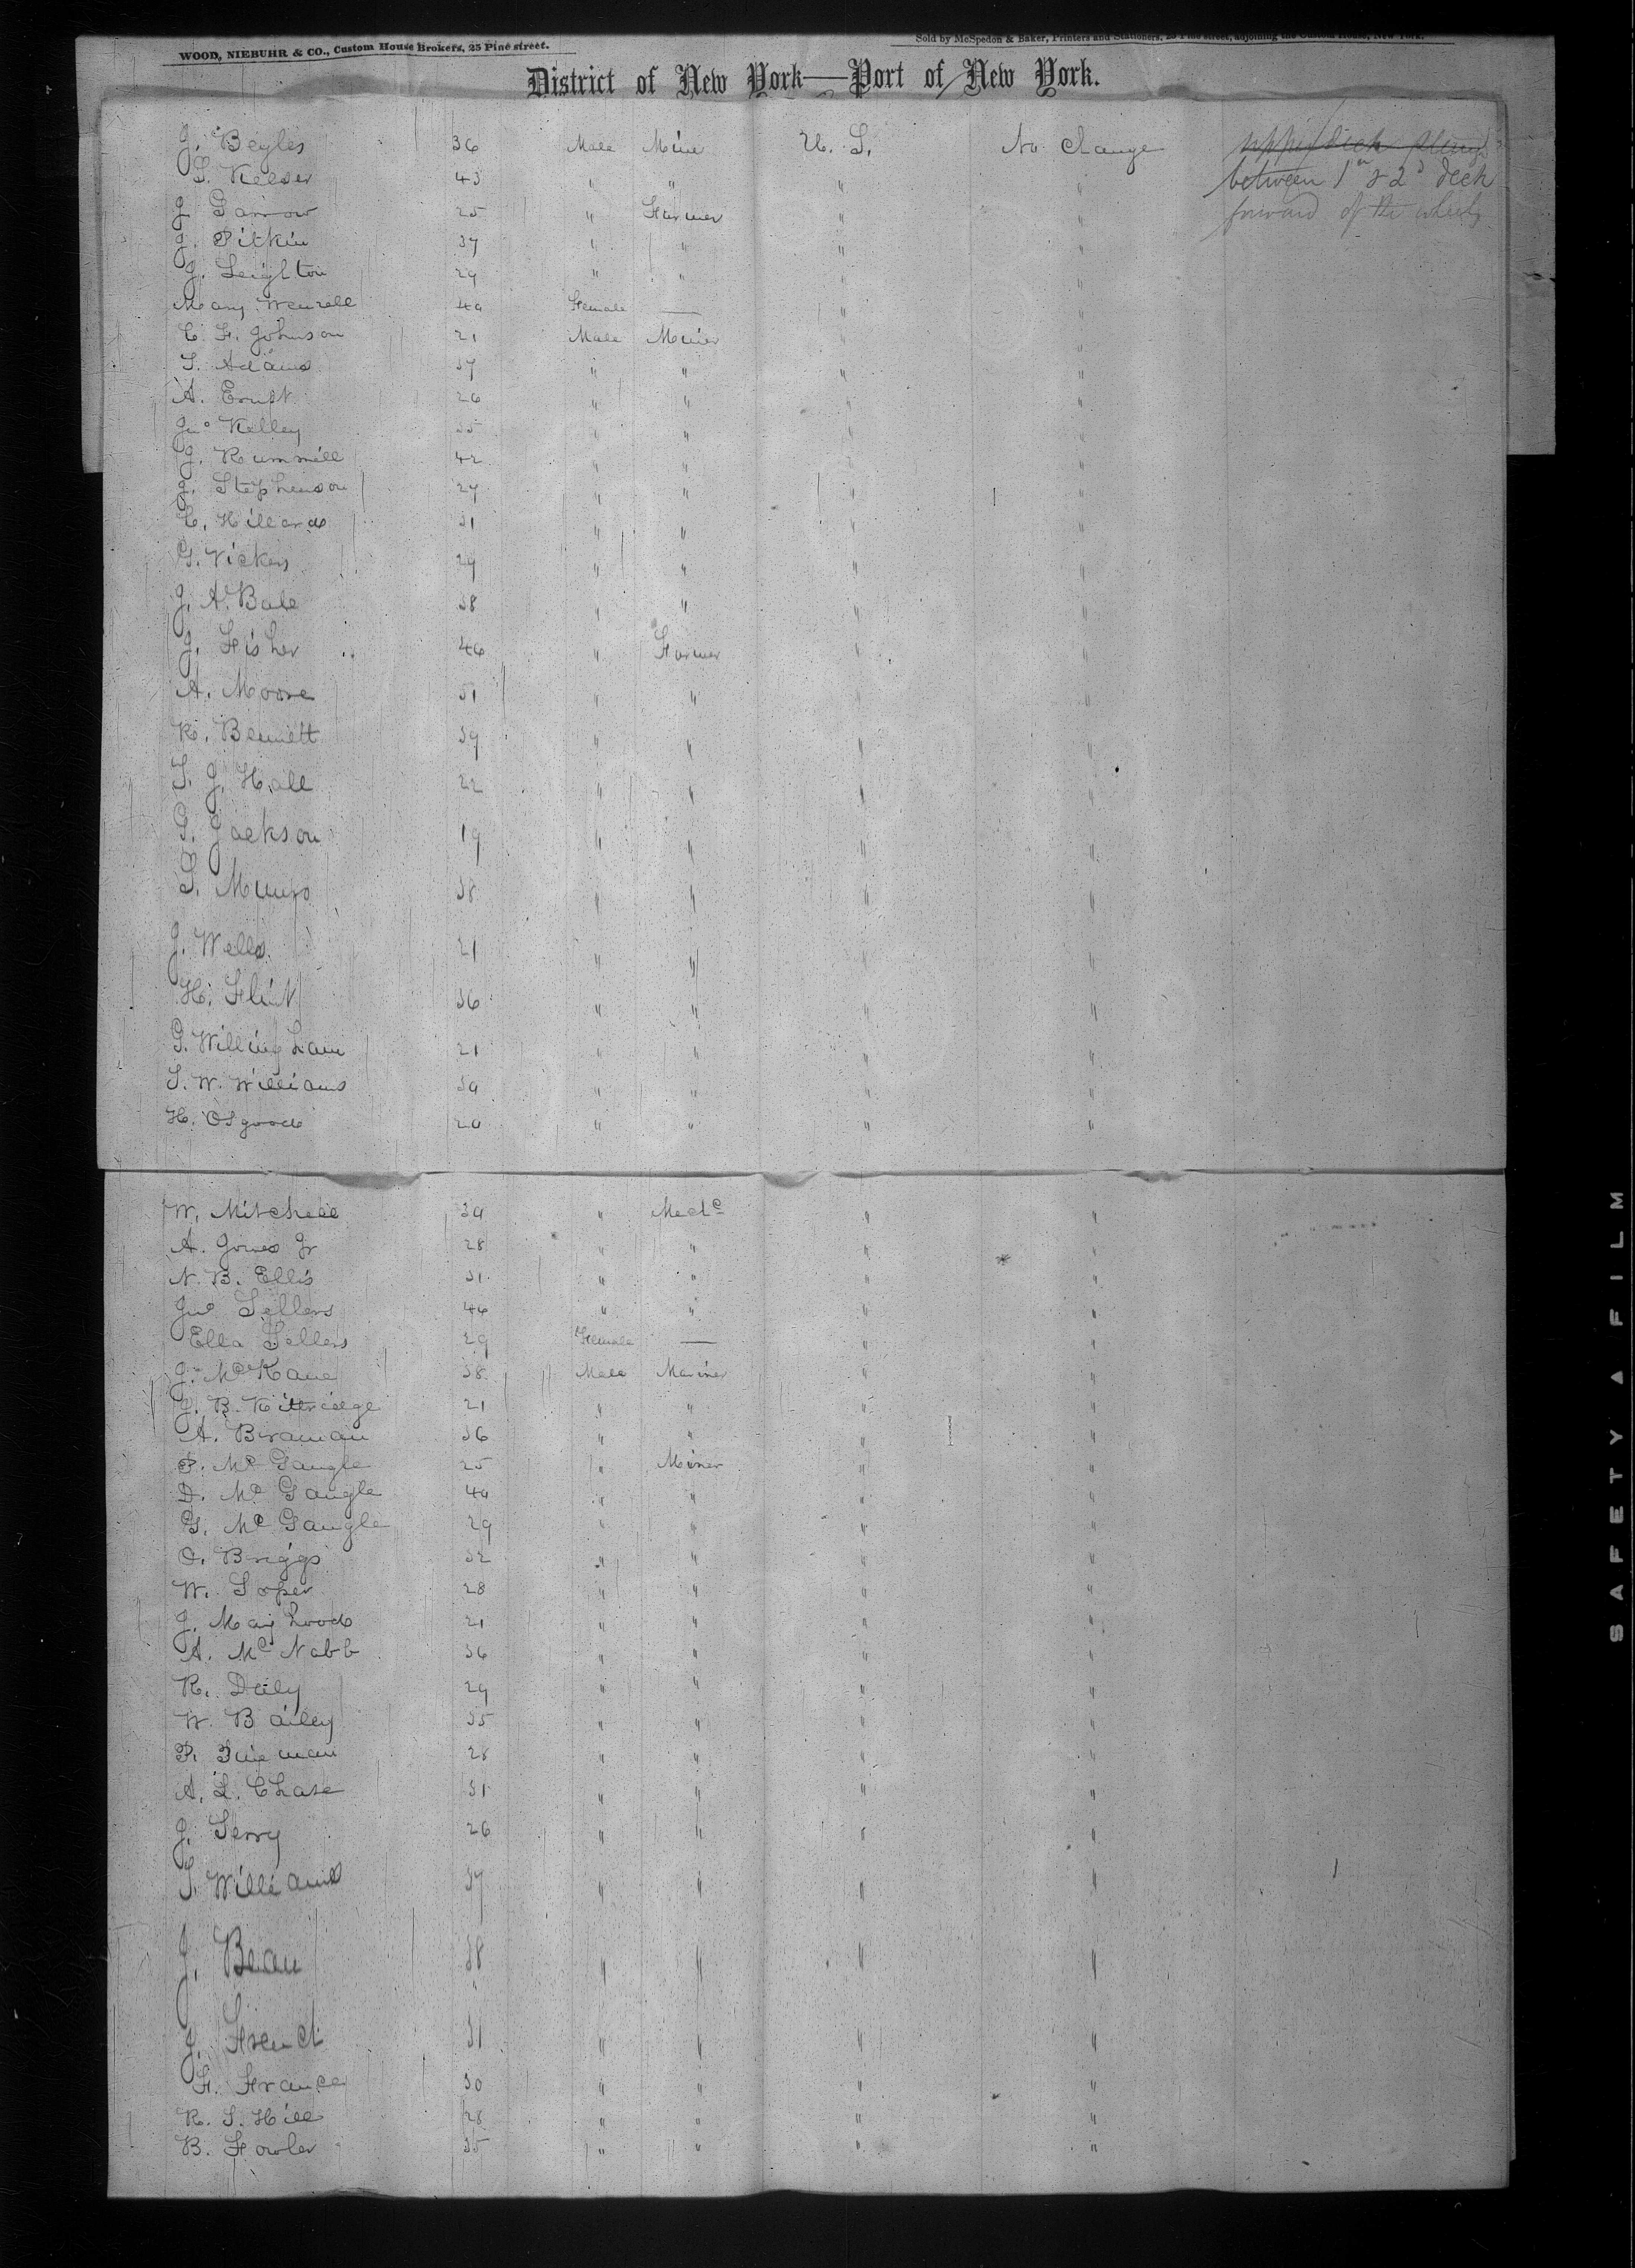 WOOD, NIEBUHR & CO., Custom House Brokers, 25 Pine street.
Sold by McSpedon & Baker, Printers and Stationers, 25 Pine street, adjoining the Custom House, New York.
District of New York—Port of New York.
J. Beyles 36 Male Mine U. S. No change upper deck
S. Keeser 43 " " " " between 1st & 2d deck
J Garrow 25 " Farmer " " forward of the wheels
J. Pitkin 37 " " " "
J. Leighton 29 " " " "
Mary Wenzell 40 Female — " "
C. F. Johnson 21 Male Miner " "
S. Adams 37 " " " "
A. Ernst 26 " " " "
Jno Kelley 35 " " " "
J. Rummell 42 " " " "
J. Stephenson 27 " " " "
C. Hillard 31 " " " "
G. Vickers 29 " " " "
J. A. Bale 38 " " " "
J. Fisher 46 " Farmer " "
A. Moore 51 " " " "
R. Bennett 39 " " " "
T. J. Hall 22 " " " "
G. Jackson 19 " " " "
S. Munro 38 " " " "
J. Wells 21 " " " "
H. Flint 36 " " " "
G. Willingham 21 " " " "
S. W. Williams 30 " " " "
H. Osgood 20 " " " "
W. Mitchell 30 " Mechc " "
A. Jones Jr 28 " " " "
N. B. Ellis 31 " " " "
Jno Sellers 46 " " " "
Ella Sellers 29 Female — " "
J. McKane 38 Male Mariner " "
C. B. Kittridge 21 " " " "
A. Braman 36 " " " "
P. Mc Gaugle 25 " Miner " "
D. Mc Gaugle 40 " " " "
G. Mc Gaugle 29 " " " "
O. Briggs 32 " " " "
W. Soper 28 " " " "
J. Mayhood 21 " " " "
A. Mc Nabb 36 " " " "
R. Daily 29 " " " "
W. Bailey 35 " " " "
P. 28 " " " "
A. L. Chase 31 " " " "
J. Terry 26 " " " "
T. Williams 37 " " " "
J. Bean 38 " " " "
J. French 31 " " " "
F. Frances 30 " " " "
R. S. Hill 28 " " " "
B. Fowler 35 " " " "
SAFETY ▲ FILM